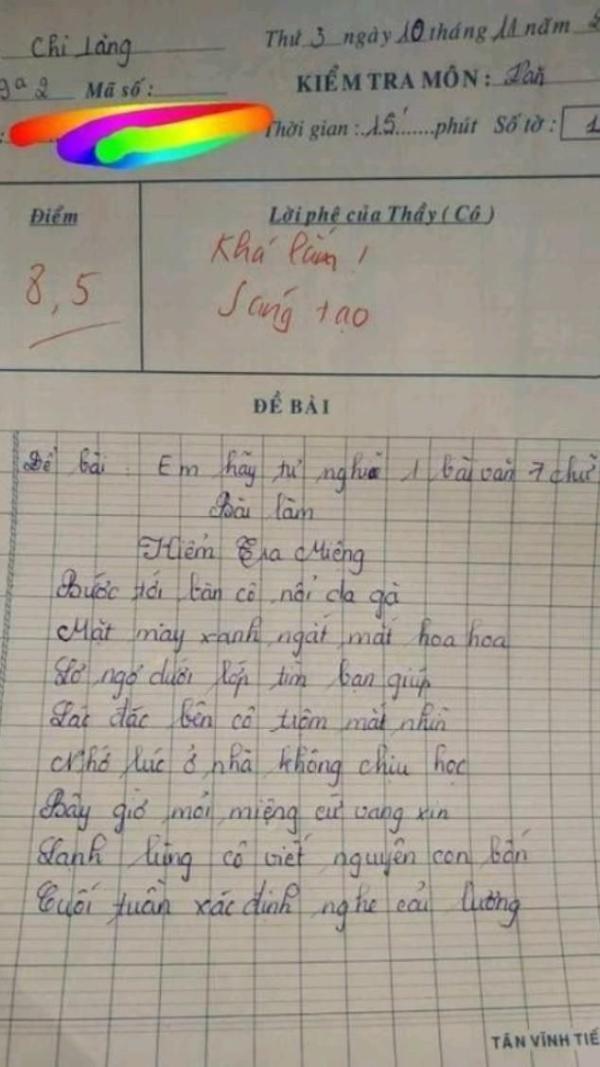 Chi Lăng Thứ 3 ngày 10 tháng 11 năm 2
9a2 Mã số : KIỂM TRA MÔN : Văn
Thời gian : 15' phút Số tờ : 1
Điểm Lời phê của Thầy ( Cô )
8,5 Khá lắm !
Sáng tạo
ĐỀ BÀI
Đề bài : Em hãy tự nghĩ 1 bài văn 7 chữ
Bài làm
Kiểm Tra Miệng
Bước tới bàn cô nổi da gà
Mặt mày xanh ngắt mắt hoa hoa
Lơ ngơ dưới lớp tìm bạn giúp
Lác đác bên cô trộm mắt nhìn
Nhớ lúc ở nhà không chịu học
Bây giờ mỏi miệng cứ vang xin
Lạnh lùng cô viết nguyên con bốn
Cuối tuần xác định nghe cải lương
TÂN VĨNH TIẾ